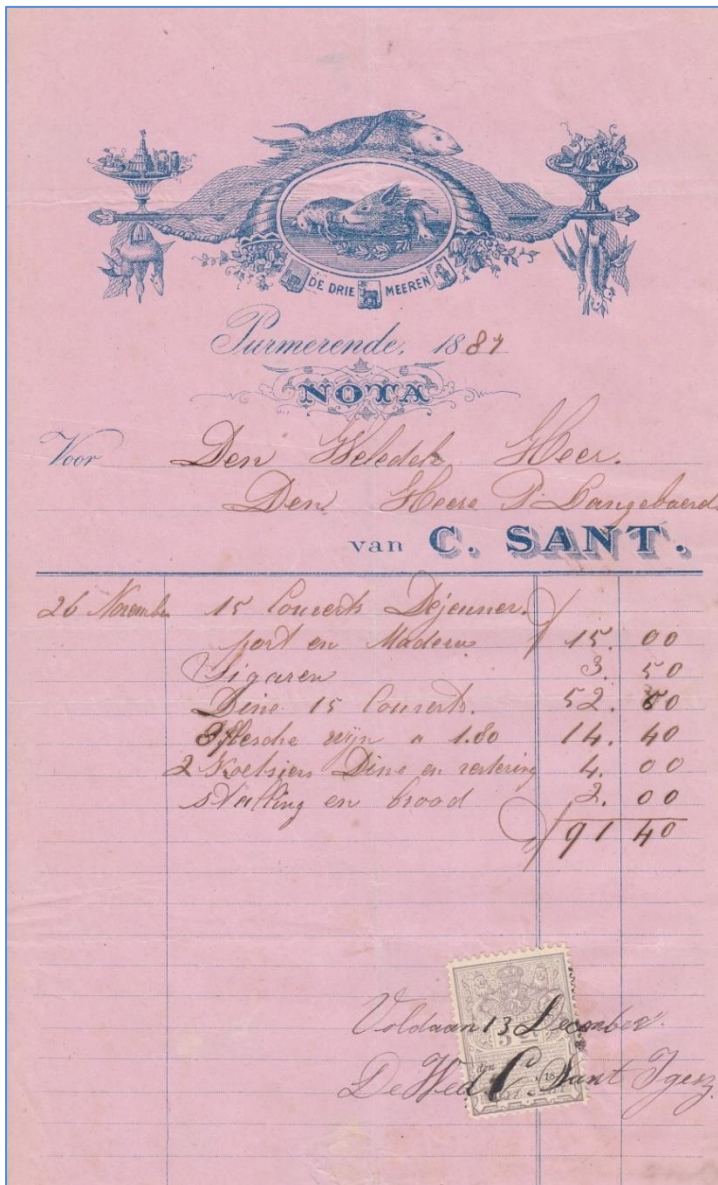 DE DRIE MEEREN
Purmerende, 1887
NOTA
Voor Den Weledele Heer.
Den Heere P. Langebaerd
van C. SANT.
26 November 15 Couverts Dejeuner
port en Madera 15. 00
Sigaren 3. 50
Dine 15 Couverts. 52. 50
8 flesche wijn a 1.80 14. 40
2 Koetsiers Dine en vertering 4. 00
stalling en brood 2. 00
91 40
Voldaan 13 December.
De Wed C. Sant